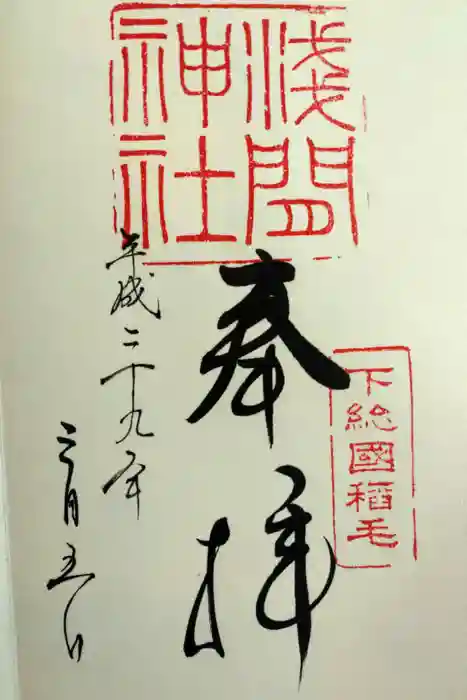 浅間
神社
奉拝
下総國稻毛
平成二十九年
三月五日